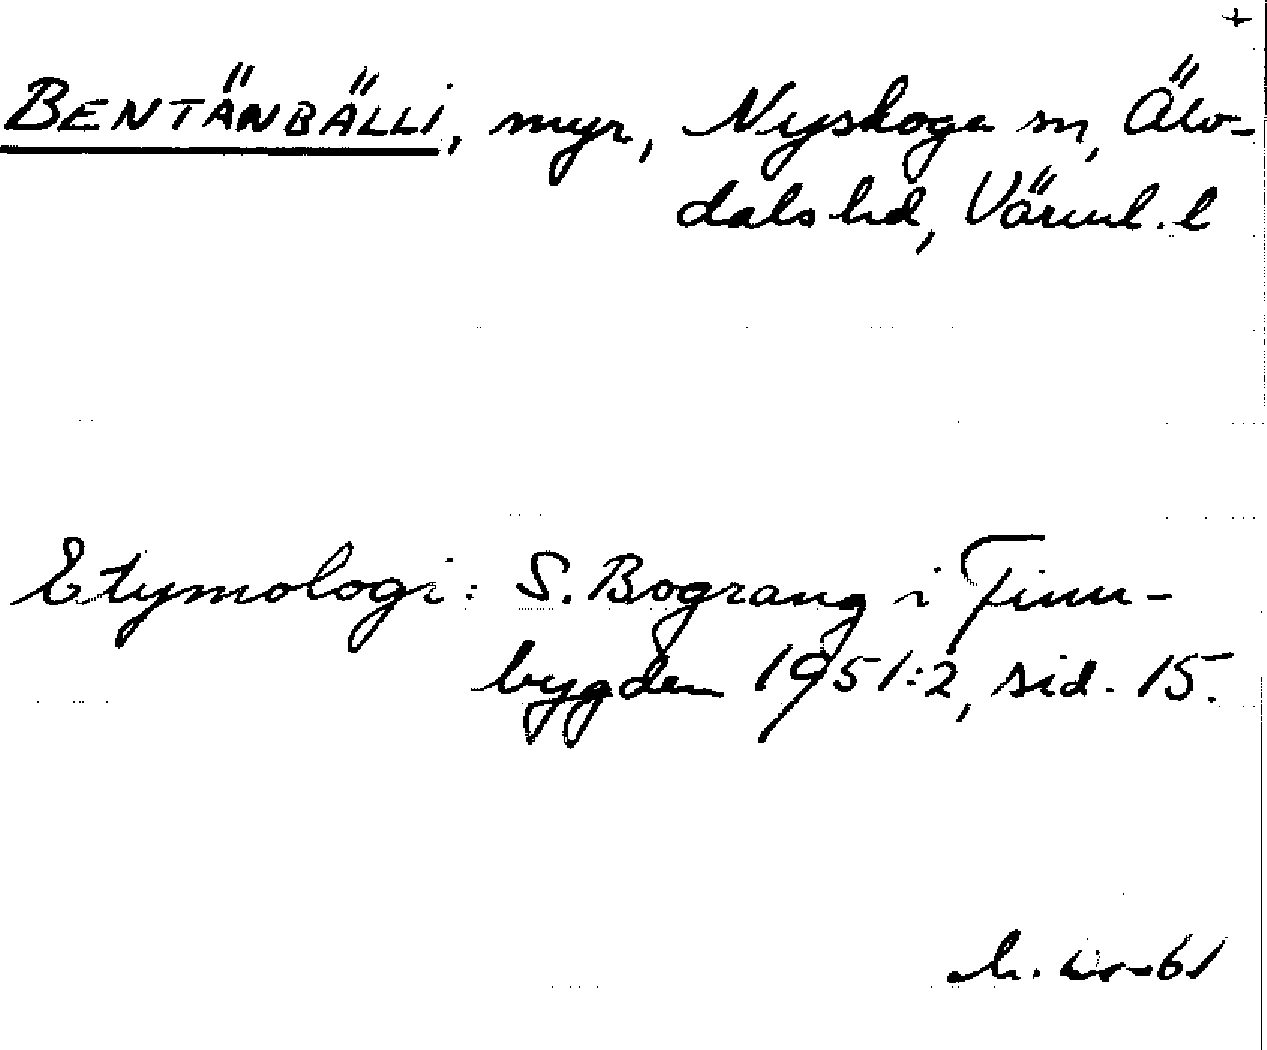 +
BENTÄNBÄLLI, myr, Nyskoga sn, Älv-
dals hd, Värml. l
Etymologi: S. Bograng i Finn-
bygden 1951:2, sid. 15.